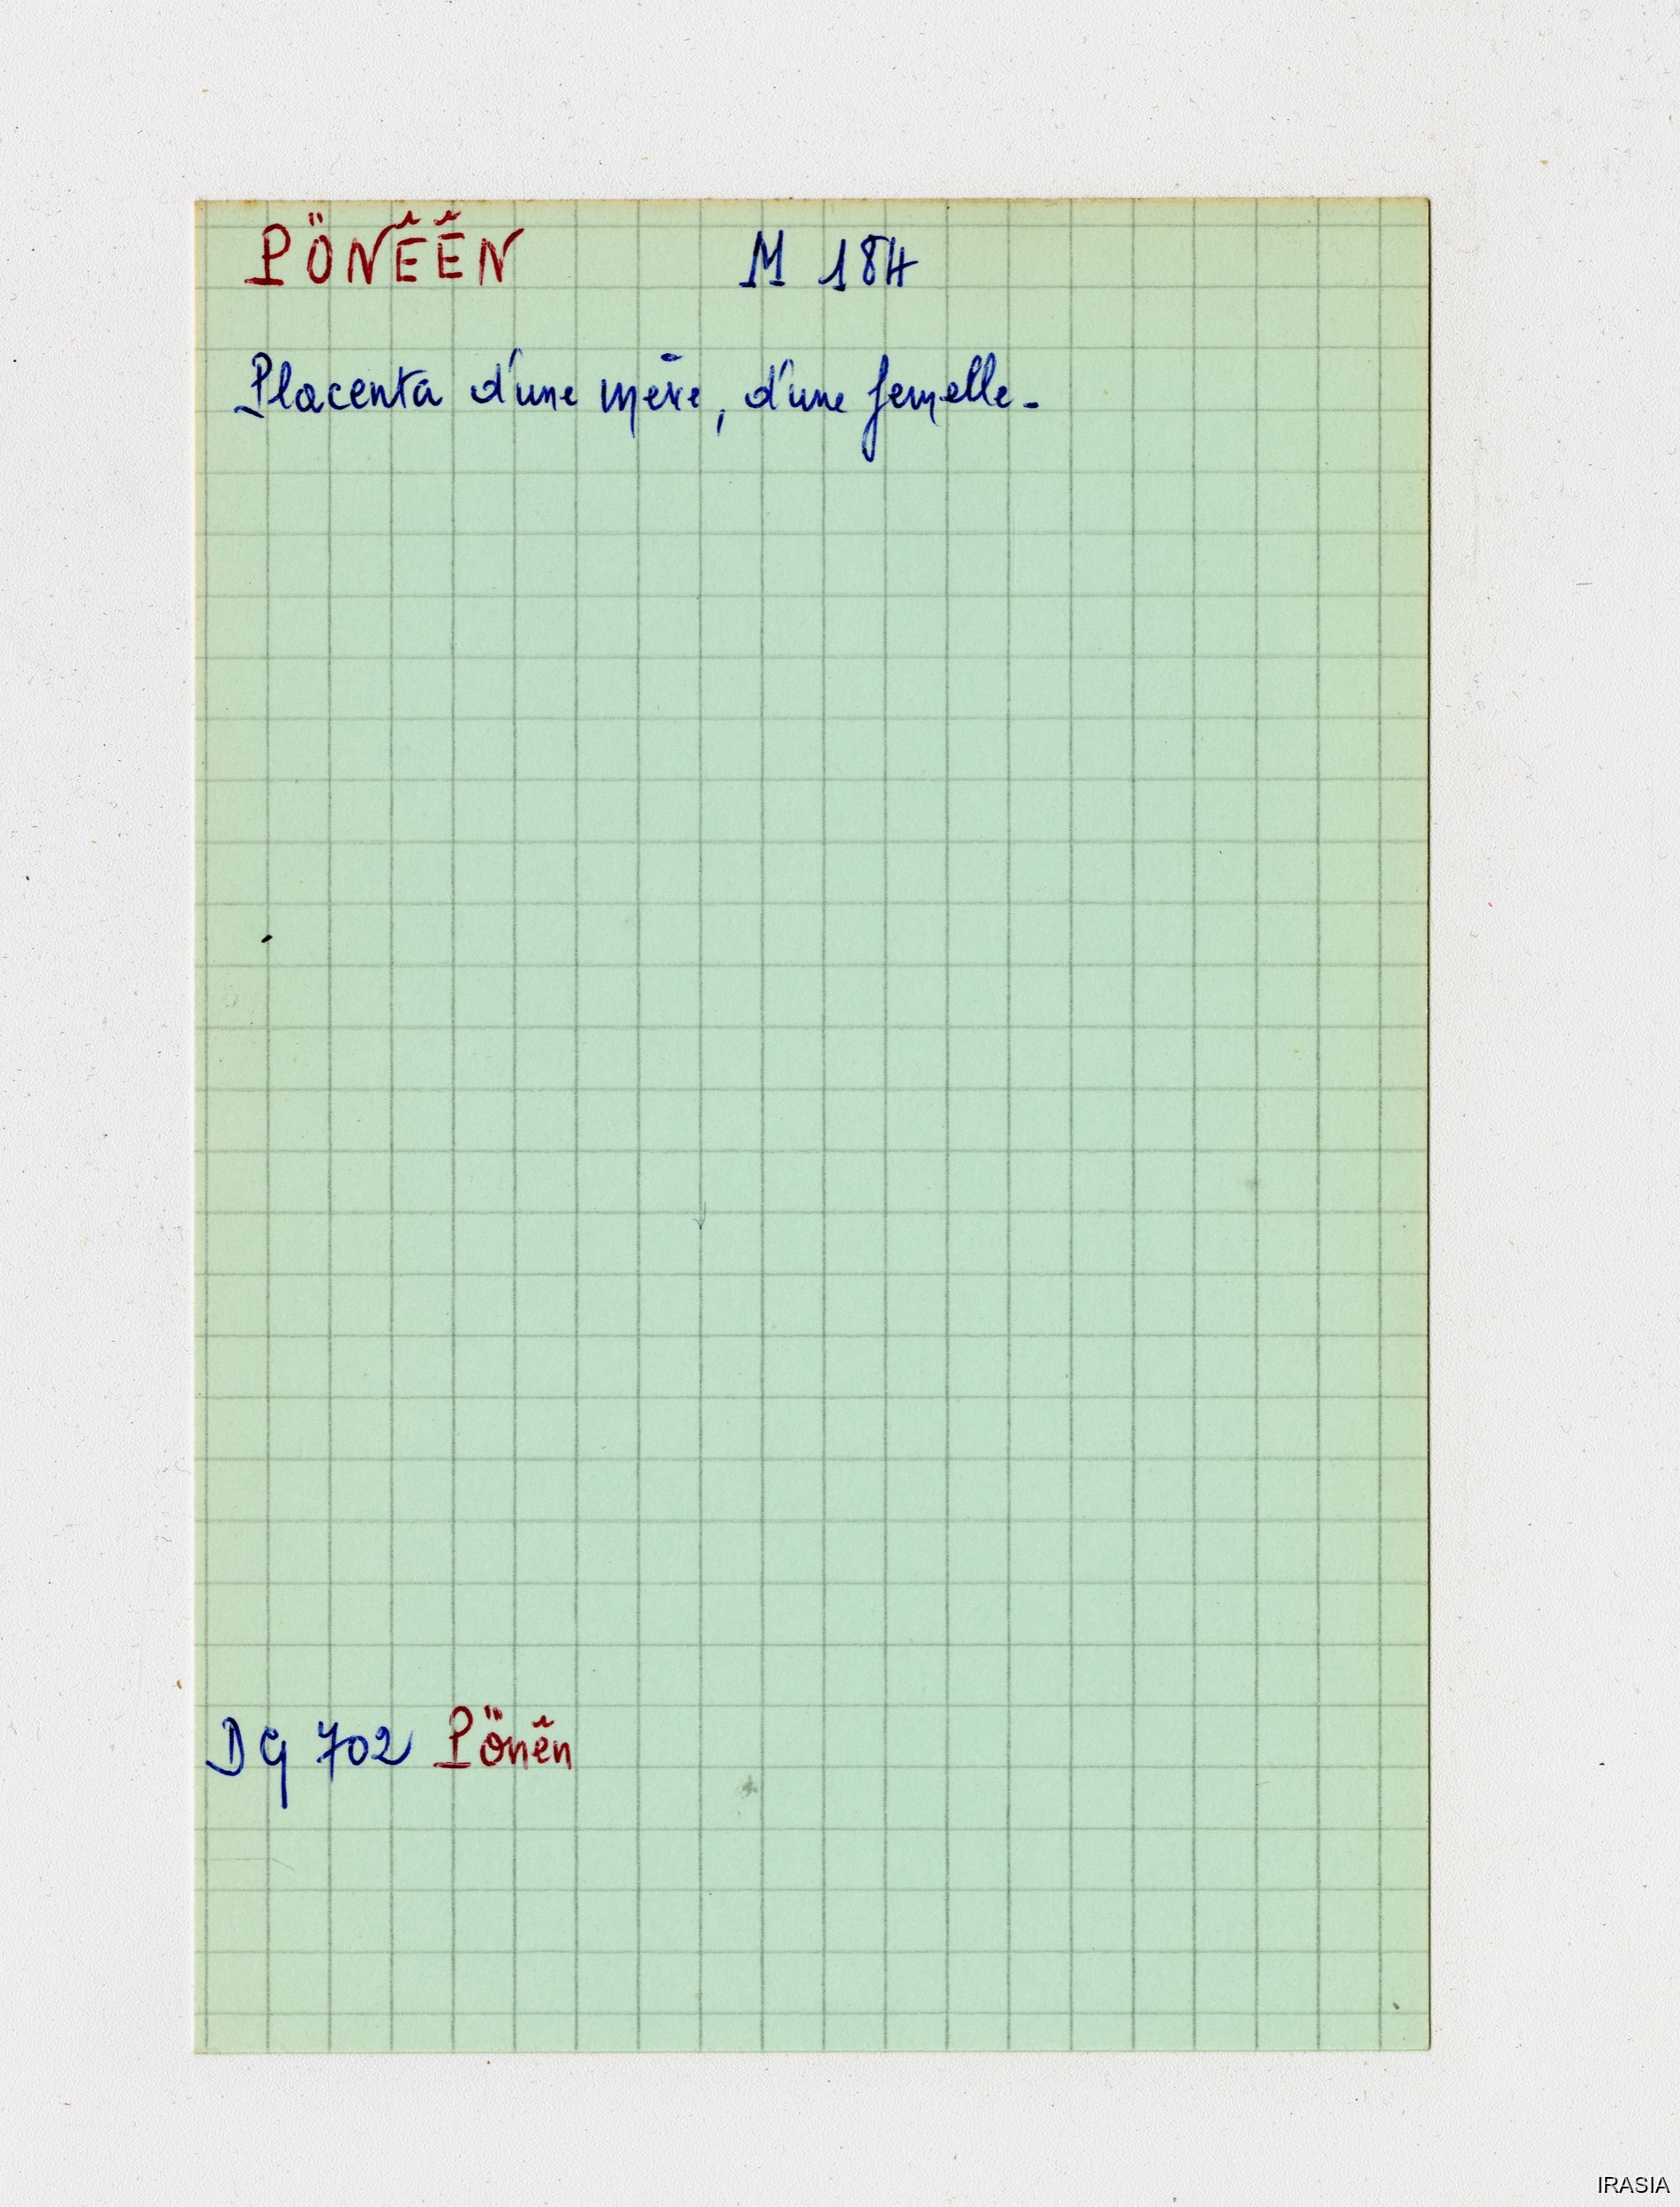 PÖNẼẼN M 184
Placenta d'une mère, d'une femelle.
DG 702 Pönẽn
IRASIA